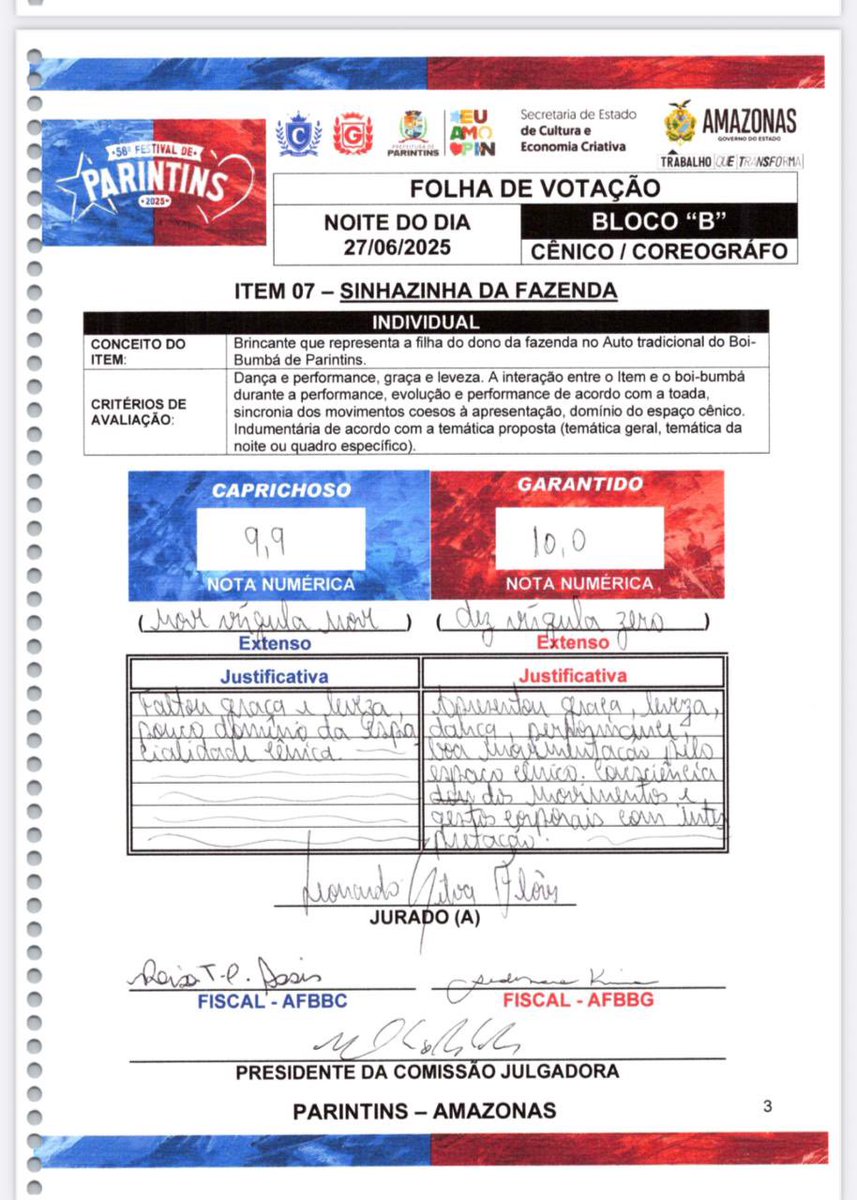 C
G
PREFEITURA DE
PARINTINS
EU
AMO
PIN
Secretaria de Estado
de Cultura e
Economia Criativa
AMAZONAS
GOVERNO DO ESTADO
TRABALHO QUE TRANSFORMA
58º FESTIVAL DE
PARINTINS
2025
FOLHA DE VOTAÇÃO
NOITE DO DIA
27/06/2025
BLOCO “B”
CÊNICO / COREOGRÁFO
ITEM 07 – SINHAZINHA DA FAZENDA
INDIVIDUAL
CONCEITO DO ITEM:
Brincante que representa a filha do dono da fazenda no Auto tradicional do Boi-
Bumbá de Parintins.
CRITÉRIOS DE AVALIAÇÃO:
Dança e performance, graça e leveza. A interação entre o Item e o boi-bumbá
durante a performance, evolução e performance de acordo com a toada,
sincronia dos movimentos coesos à apresentação, domínio do espaço cênico.
Indumentária de acordo com a temática proposta (temática geral, temática da
noite ou quadro específico).
CAPRICHOSO
9,9
NOTA NUMÉRICA
(nove vírgula nove)
Extenso
Justificativa
Faltou graça e leveza,
pouco domínio da espa
cialidade cênica.
GARANTIDO
10,0
NOTA NUMÉRICA
(dez vírgula zero)
Extenso
Justificativa
Apresentou graça, leveza,
dança, performance,
boa movimentação pelo
espaço cênico. Consciência
dos movimentos e
gestos corporais com inter
pretação.
Leonardo Silva
JURADO (A)
Assis
FISCAL - AFBBC
FISCAL - AFBBG
PRESIDENTE DA COMISSÃO JULGADORA
PARINTINS – AMAZONAS
3